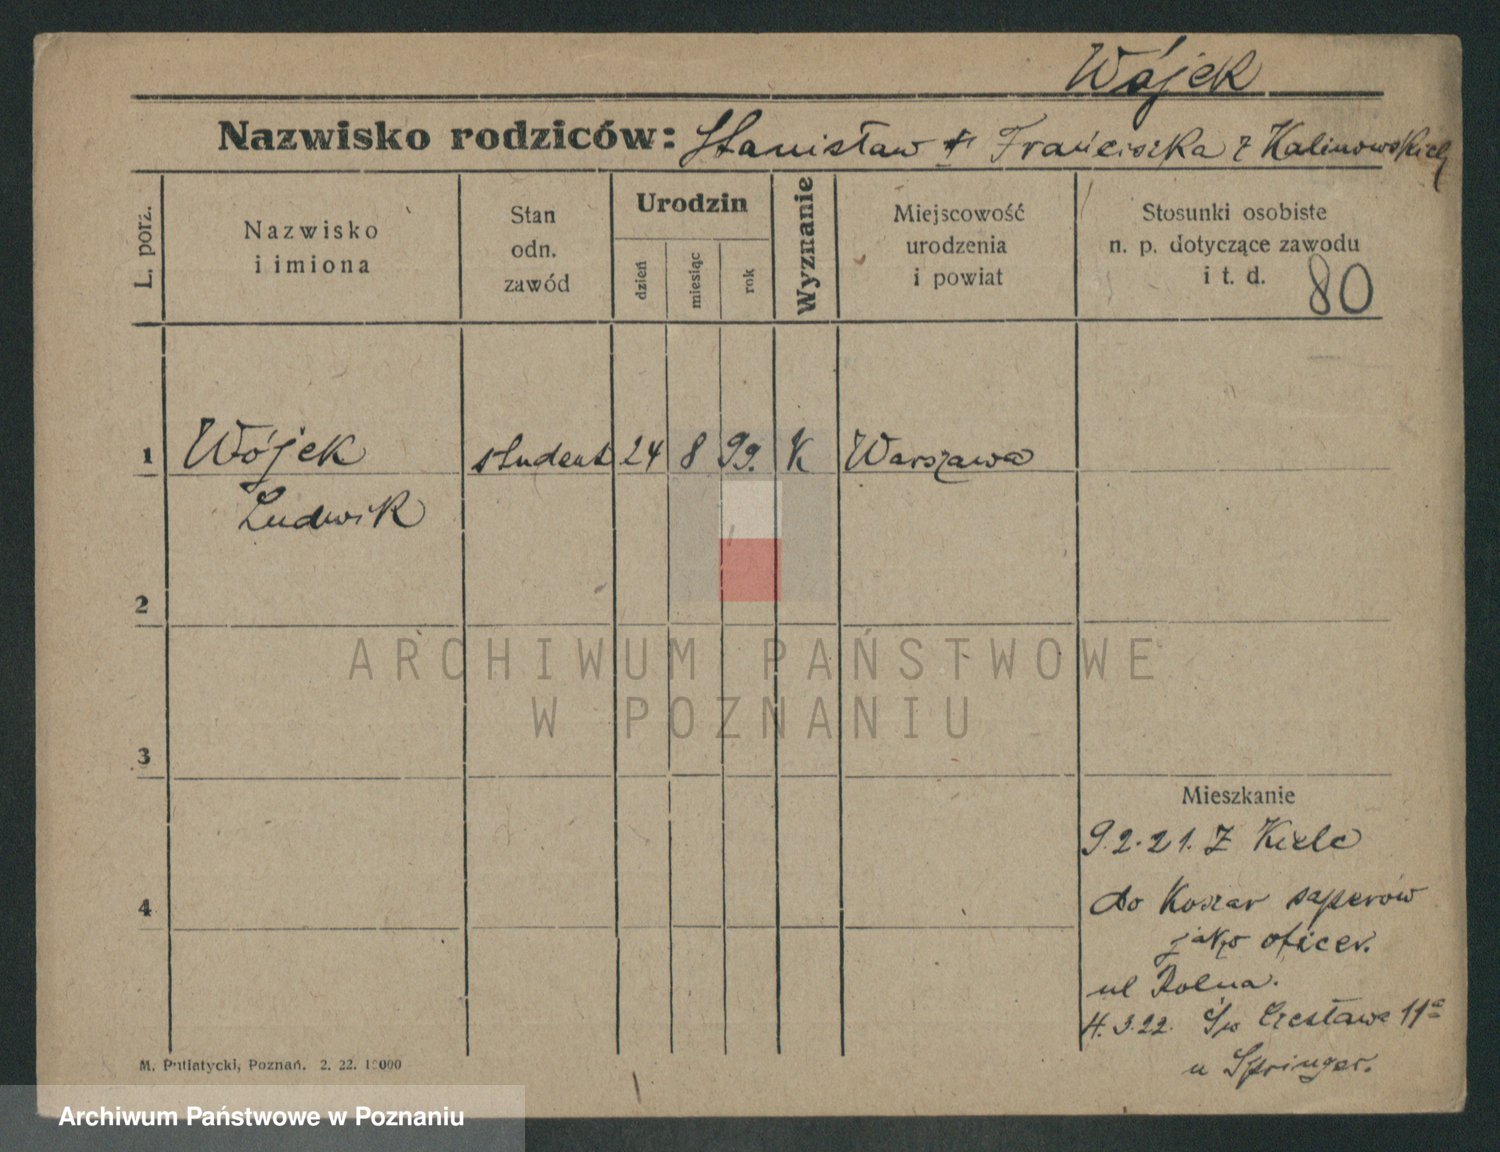 Wójek
Nazwisko rodziców: Stanisław + Franciszka z Kalinowskich
L. porz.
Nazwisko
i imiona
Stan
odn.
zawód
Urodzin
dzień
miesiąc
rok
Wyznanie
Miejscowość
urodzenia
i powiat
Stosunki osobiste
n. p. dotyczące zawodu
i t. d.
80
1 Wójek student 24 8 99. K Warszawa
Ludwik
2
3
4
Mieszkanie
9.2.21. Z Kielc
do Koszar saperów
jako oficer.
ul Rolna.
4.3.22. Św Czesława 11a
u Springer.
M. Putiatycki, Poznań. 2. 22. 10000
ARCHIWUM PAŃSTWOWE
W POZNANIU
Archiwum Państwowe w Poznaniu